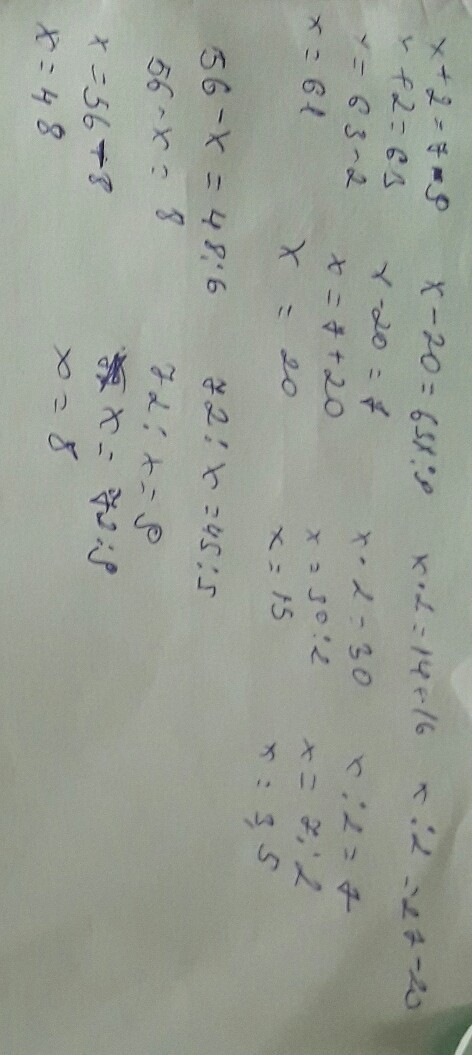 x + 2 = 7 · 9
x + 2 = 63
x = 63 - 2
x = 61
x - 20 = 63 : 9
x - 20 = 7
x = 7 + 20
x = 20
x · 2 = 14 + 16
x · 2 = 30
x = 30 : 2
x = 15
x : 2 = 27 - 20
x : 2 = 7
x = 7 : 2
x = 3,5
56 - x = 48 : 6
56 - x = 8
x = 56 - 8
x = 48
72 : x = 45 : 5
72 : x = 9
x = 72 : 9
x = 8